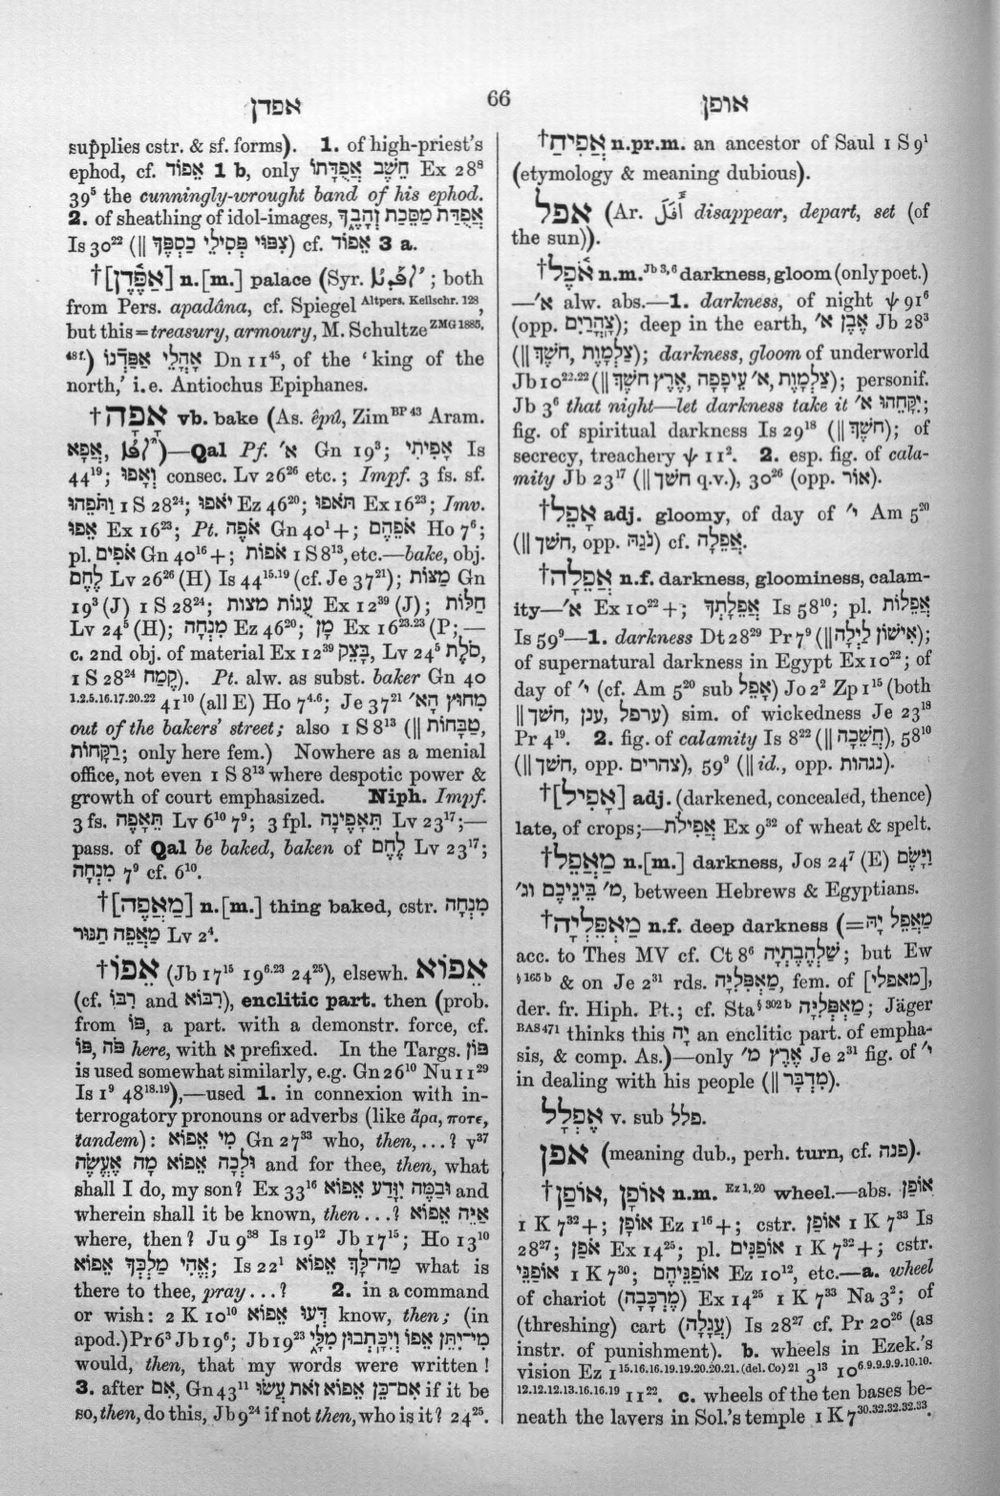 אפדן
66
אופן
supplies cstr. & sf. forms). 1. of high-priest's
ephod, cf. אֵפוֹד 1 b, only חֵשֶׁב אֲפֻדָּתוֹ Ex 28⁸
39⁵ the cunningly-wrought band of his ephod.
2. of sheathing of idol-images, אֲפֻדַּת מַסֵּכַת זְהָבֶךָ
Is 30²² (‖ צִפּוּי פְּסִילֵי כַסְפֶּךָ) cf. אֵפוֹד 3 a.
†[אַפֶּדֶן] n.[m.] palace (Syr. ; both
from Pers. apadâna, cf. Spiegel Altpers. Keilschr. 128,
but this = treasury, armoury, M. Schultze ZMG 1885,
48 f.) אָהֳלֵי אַפַּדְנוֹ Dn 11⁴⁵, of the 'king of the
north,' i.e. Antiochus Epiphanes.
†אָפָה vb. bake (As. êpû, Zim BP 43 Aram.
אֲפָא, )—Qal Pf. א׳ Gn 19³; אָפִיתִי Is
44¹⁹; וְאָפוּ consec. Lv 26²⁶ etc.; Impf. 3 fs. sf.
וַתֹּפֵהוּ 1 S 28²⁴; יֹאפוּ Ez 46²⁰; תֹּאפוּ Ex 16²³; Imv.
אֵפוּ Ex 16²³; Pt. אֹפֶה Gn 40¹ +; אֹפֵהֶם Ho 7⁶;
pl. אֹפִים Gn 40¹⁶ +; אֹפוֹת 1 S 8¹³, etc.—bake, obj.
לֶחֶם Lv 26²⁶ (H) Is 44¹⁵·¹⁹ (cf. Je 37²¹); מַצּוֹת Gn
19³ (J) 1 S 28²⁴; עֻגוֹת מצות Ex 12³⁹ (J); חַלּוֹת
Lv 24⁵ (H); מִנְחָה Ez 46²⁰; מָן Ex 16²³·²³ (P;—
c. 2nd obj. of material Ex 12³⁹ בָּצֵק, Lv 24⁵ סֹלֶת,
1 S 28²⁴ קֶמַח). Pt. alw. as subst. baker Gn 40
1.2.5.16.17.20.22 41¹⁰ (all E) Ho 7⁴·⁶; Je 37²¹ מִחוּץ הָא׳
out of the bakers' street; also 1 S 8¹³ (‖ טַבָּחוֹת,
רַקָּחוֹת; only here fem.) Nowhere as a menial
office, not even 1 S 8¹³ where despotic power &
growth of court emphasized. Niph. Impf.
3 fs. תֵּאָפֶה Lv 6¹⁰ 7⁹; 3 fpl. תֵּאָפֶינָה Lv 23¹⁷;—
pass. of Qal be baked, baken of לֶחֶם Lv 23¹⁷;
מִנְחָה 7⁹ cf. 6¹⁰.
†[מַאֲפֶה] n.[m.] thing baked, cstr. מִנְחָה
מַאֲפֵה תַנּוּר Lv 2⁴.
†אֵפוֹ (Jb 17¹⁵ 19⁶·²³ 24²⁵), elsewh. אֵפוֹא
(cf. רִבּוֹ and רִבּוֹא), enclitic part. then (prob.
from פּוֹ, a part. with a demonstr. force, cf.
פּוֹ, פֹּה here, with א prefixed. In the Targs. פּוֹן
is used somewhat similarly, e.g. Gn 26¹⁰ Nu 11²⁹
Is 1⁹ 48¹⁸·¹⁹),—used 1. in connexion with in-
terrogatory pronouns or adverbs (like ἄρα, ποτε,
tandem): מִי אֵפוֹא Gn 27³³ who, then, ...? v³⁷
וּלְכָה אֵפוֹא מָה אֶעֱשֶׂה and for thee, then, what
shall I do, my son? Ex 33¹⁶ וּבַמֶּה יִוָּדַע אֵפוֹא and
wherein shall it be known, then ...? אַיֵּה אֵפוֹא
where, then? Ju 9³⁸ Is 19¹² Jb 17¹⁵; Ho 13¹⁰
אֱהִי מַלְכְּךָ אֵפוֹא; Is 22¹ מַה־לָּךְ אֵפוֹא what is
there to thee, pray ...? 2. in a command
or wish: 2 K 10¹⁰ דְּעוּ אֵפוֹא know, then; (in
apod.) Pr 6³ Jb 19⁶; Jb 19²³ מִי־יִתֵּן אֵפוֹ וְיִכָּתְבוּן מִלָּי
would, then, that my words were written!
3. after אִם, Gn 43¹¹ אִם־כֵּן אֵפוֹא זֹאת עֲשׂוּ if it be
so, then, do this, Jb 9²⁴ if not then, who is it? 24²⁵.
†אֲפִיחַ n.pr.m. an ancestor of Saul 1 S 9¹
(etymology & meaning dubious).
אפל (Ar. أَفَلَ disappear, depart, set (of
the sun)).
†אֹפֶל n.m. Jb 3, 6 darkness, gloom (only poet.)
—א׳ alw. abs.—1. darkness, of night ψ 91⁶
(opp. צָהֳרַיִם); deep in the earth, אֶבֶן א׳ Jb 28³
(‖ חֹשֶׁךְ, צַלְמָוֶת); darkness, gloom of underworld
Jb 10²²·²² (‖ אֶרֶץ חֹשֶׁךְ, עֵיפָפָה, א׳ צַלְמָוֶת); personif.
Jb 3⁶ that night—let darkness take it יִקָּחֵהוּ א׳;
fig. of spiritual darkness Is 29¹⁸ (‖ חֹשֶׁךְ); of
secrecy, treachery ψ 11². 2. esp. fig. of cala-
mity Jb 23¹⁷ (‖ חשׁך q.v.), 30²⁶ (opp. אוֹר).
†אָפֵל adj. gloomy, of day of י׳ Am 5²⁰
(‖ חשׁך, opp. נֹגַהּ) cf. אֲפֵלָה.
†אֲפֵלָה n.f. darkness, gloominess, calam-
ity—א׳ Ex 10²² +; אֲפֵלָתְךָ Is 58¹⁰; pl. אֲפֵלוֹת
Is 59⁹—1. darkness Dt 28²⁹ Pr 7⁹ (‖ אִישׁוֹן לַיְלָה);
of supernatural darkness in Egypt Ex 10²²; of
day of י׳ (cf. Am 5²⁰ sub אָפֵל) Jo 2² Zp 1¹⁵ (both
‖ חשׁך, ענן, ערפל) sim. of wickedness Je 23¹⁸
Pr 4¹⁹. 2. fig. of calamity Is 8²² (‖ חֲשֵׁכָה), 58¹⁰
(‖ חשׁך, opp. צהרים), 59⁹ (‖ id., opp. נגהות).
†[אָפִיל] adj. (darkened, concealed, thence)
late, of crops;—אֲפִילֹת Ex 9³² of wheat & spelt.
†מַאֲפֵל n.[m.] darkness, Jos 24⁷ (E) וַיָּשֶׂם
מ׳ בֵּינֵיכֶם וג׳, between Hebrews & Egyptians.
†מַאְפֵּלְיָה n.f. deep darkness (=מַאֲפֵל יָהּ
acc. to Thes MV cf. Ct 8⁶ שַׁלְהֶבֶתְיָה; but Ew
§ 165 b & on Je 2³¹ rds. מַאְפֵּלִיָּה, fem. of [מאפלי],
der. fr. Hiph. Pt.; cf. Sta § 302 b מַאְפֵּלִיָּה; Jäger
BAS 471 thinks this יָה an enclitic part. of empha-
sis, & comp. As.)—only אֶרֶץ מ׳ Je 2³¹ fig. of י׳
in dealing with his people (‖ מִדְבָּר).
אֶפְלָל v. sub פלל.
אפן (meaning dub., perh. turn, cf. פנה).
†אוֹפָן, אוֹפַן n.m. Ez 1, 20 wheel.—abs. אוֹפַן
1 K 7³² +; אוֹפָן Ez 1¹⁶ +; cstr. אוֹפַן 1 K 7³³ Is
28²⁷; אֹפַן Ex 14²⁵; pl. אוֹפַנִּים 1 K 7³² +; cstr.
אוֹפַנֵּי 1 K 7³⁰; אוֹפַנֵּיהֶם Ez 10¹², etc.—a. wheel
of chariot (מֶרְכָּבָה) Ex 14²⁵ 1 K 7³³ Na 3²; of
(threshing) cart (עֲגָלָה) Is 28²⁷ cf. Pr 20²⁶ (as
instr. of punishment). b. wheels in Ezek.'s
vision Ez 1 15.16.16.19.19.20.20.21.(del. Co) 21 3¹³ 10 6.9.9.9.9.10.10.
12.12.12.13.16.16.19 11²². c. wheels of the ten bases be-
neath the lavers in Sol.'s temple 1 K 7 30.32.32.32.33.